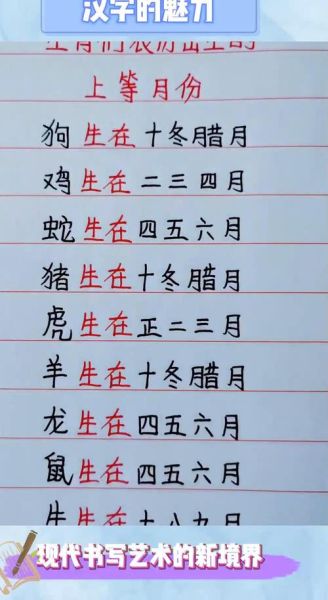 汉字的魅力
生肖们农历出生的
上等月份
狗生在十冬腊月
鸡生在二三四月
蛇生在四五六月
猪生在十冬腊月
虎生在正二三月
羊生在十冬腊月
龙生在四五六月
鼠生在四五六月
牛生在七八九月
现代书写艺术的新境界